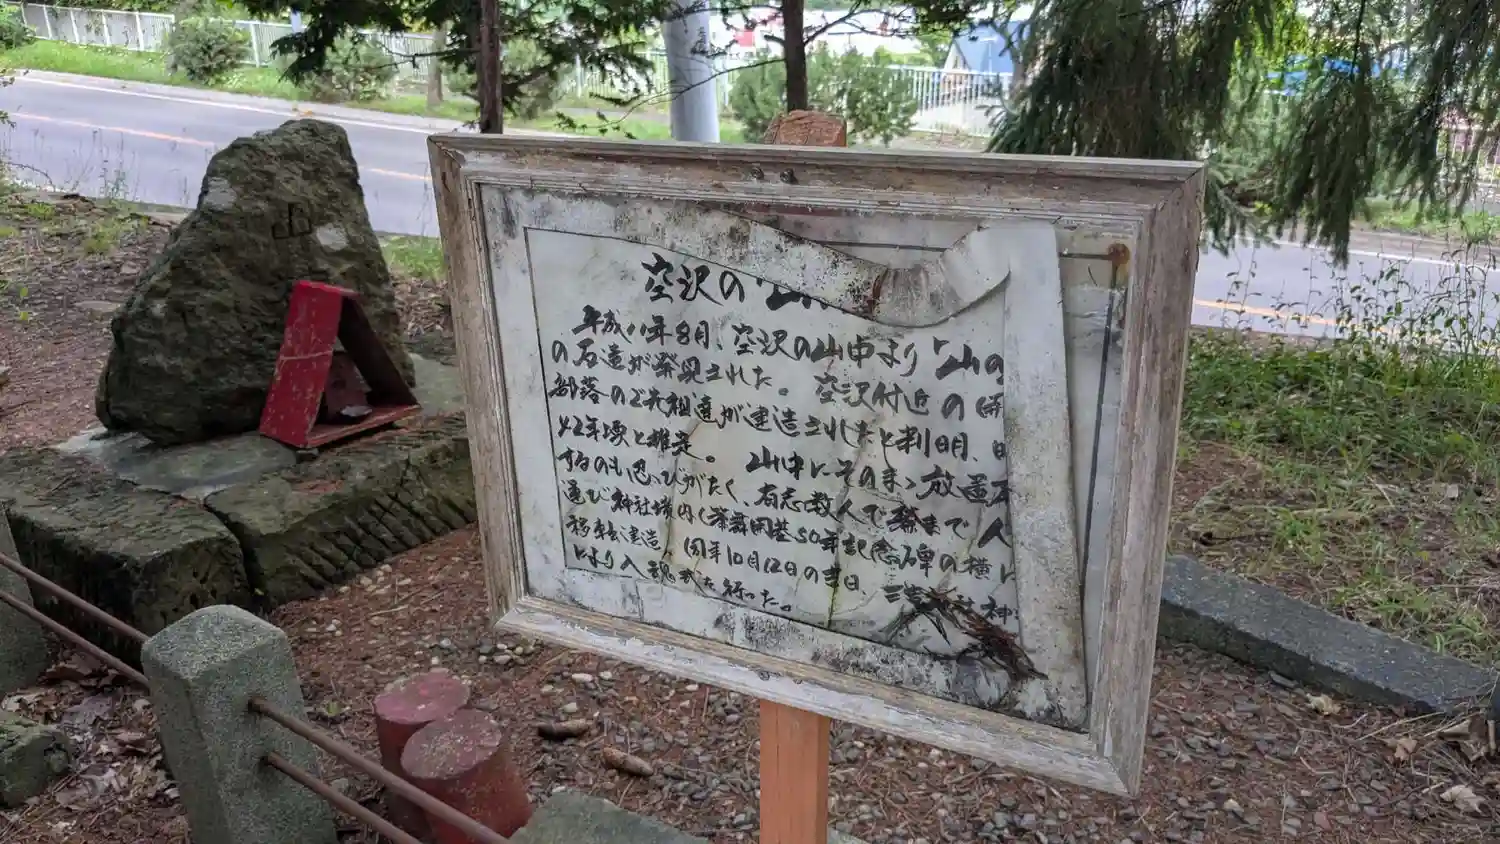 山
空沢の「山
平成八年8月、空沢の山中より「山の
の石造が発見された。空沢付近の開
部落のご先祖達が建造されたと判明、
42年頃と推定。山中にそのまゝ放置
するのも忍びがたく、有志数人で麓まで人
運び神社境内(茶舞開基50年記念碑の横に
移転建造。同年10月12日の吉日、神
により入魂式を行った。